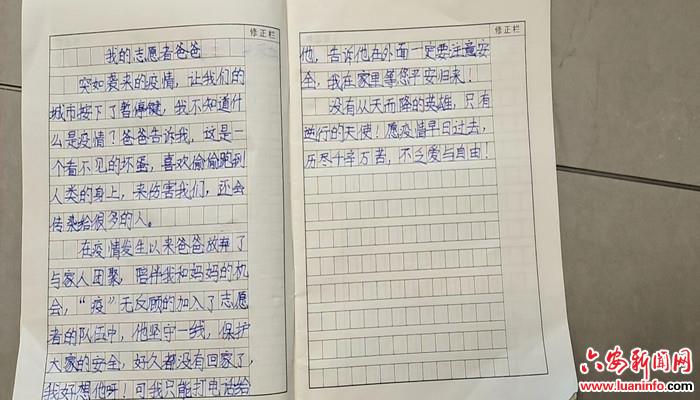 修正栏
我的志愿者爸爸
突如袭来的疫情，让我们的
城市按下了暂停键，我不知道什
么是疫情？爸爸告诉我，这是一
个看不见的坏蛋，喜欢偷偷跑到
人类的身上，来伤害我们，还会
传染给很多的人。
在疫情发生以来爸爸放弃了
与家人团聚，陪伴我和妈妈的机
会，“疫”无反顾的加入了志愿
者的队伍中，他坚守一线，保护
大家的安全，好久都没有回家了，
我好想他呀！可我只能打电话给
修正栏
他，告诉他在外面一定要注意安
全，我在家里等您平安归来！
没有从天而降的英雄，只有
逆行的天使！愿疫情早日过去，
历尽千辛万苦，不乏爱与自由！
六安新闻网
www.luaninfo.com